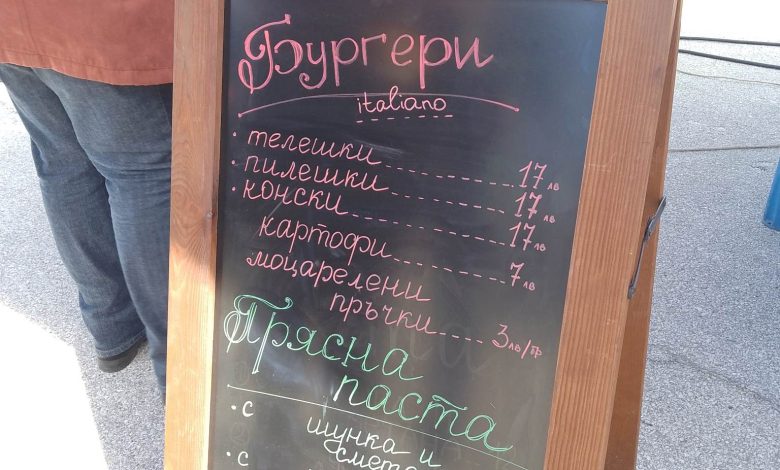 Бургери
italiano
· телешки 17 лв
· пилешки 17 лв
· конски 17 лв
картофи 7 лв
моцарелени
пръчки 3 лв/бр
Прясна
паста
· с шунка и
смета
· с